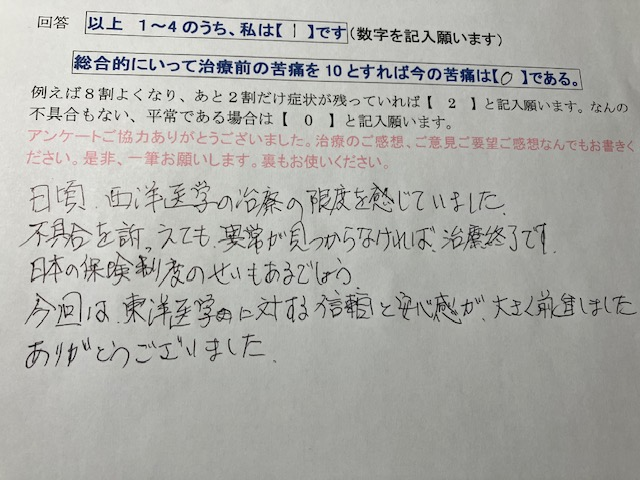 回答 以上 1～4のうち、私は【 1 】です(数字を記入願います)
総合的にいって治療前の苦痛を10とすれば今の苦痛は【 0 】である。
例えば8割よくなり、あと2割だけ症状が残っていれば【 2 】と記入願います。なんの
不具合もない、平常である場合は【 0 】と記入願います。
アンケートご協力ありがとうございました。治療のご感想、ご意見ご要望ご感想なんでもお書きく
ださい。是非、一筆お願いします。裏もお使いください。
日頃、西洋医学の治療の限度を感じていました。
不具合を訴っえても、異常が見つからなければ、治療終了です。
日本の保険制度のせいもあるでしょう
今回は、東洋医学に対する信頼と安心感が、大きく前進しました
ありがとうございました。